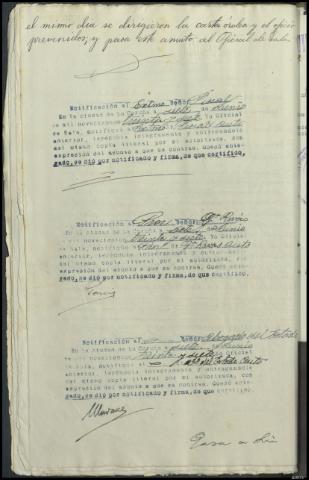 el mismo dia se dirigieron la carta orden y el oficio
prevenidos; y pasa este asunto al Oficial de Sala.
Notificación al Extmo Señor Fiscal
En la ciudad de la Coruña a siete de Junio
de mil novecientos treinta y siete yo Oficial
de Sala, notifiqué el auto
anterior, leyéndole íntegramente y entregandole
del mismo copia literal por mi autorizada, con
expresión del asunto a que se contrae. Quedó ente-
rado, se dió por notificado y firma, de que certifico.
Notificación al Proc Señor Rivas
En la ciudad de la Coruña a siete de Junio
de mil novecientos treinta y siete yo Oficial
de Sala, notifiqué el auto
anterior, leyéndole íntegramente y entregandole
del mismo copia literal por mi autorizada, con
expresión del asunto a que se contrae. Quedó ente-
rado, se dió por notificado y firma, de que certifico.
Notificación al Señor Abogado del Estado
En la ciudad de la Coruña a siete de Junio
de mil novecientos treinta y siete yo Oficial
de Sala, notifiqué al Sr. Abdo del Estado auto
anterior, leyéndole íntegramente y entregandole
del mismo copia literal por mi autorizada, con
expresión del asunto a que se contrae. Quedó ente-
rado, se dió por notificado y firma, de que certifico
Pasa a